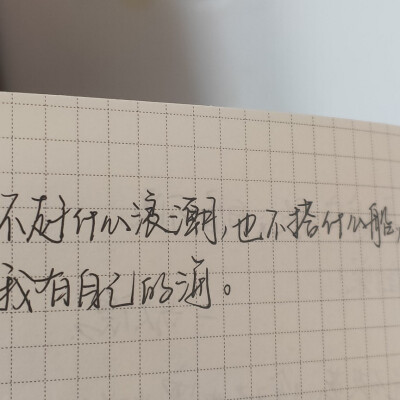 不赶什么浪潮,也不搭什么船,
我有自己的海。